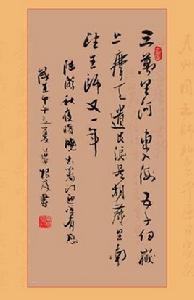 三万里河東入海五千仞嶽
上摩天遺民淚盡胡塵里南
望王師又一年
陸游秋夜將曉出籬門迎涼有感